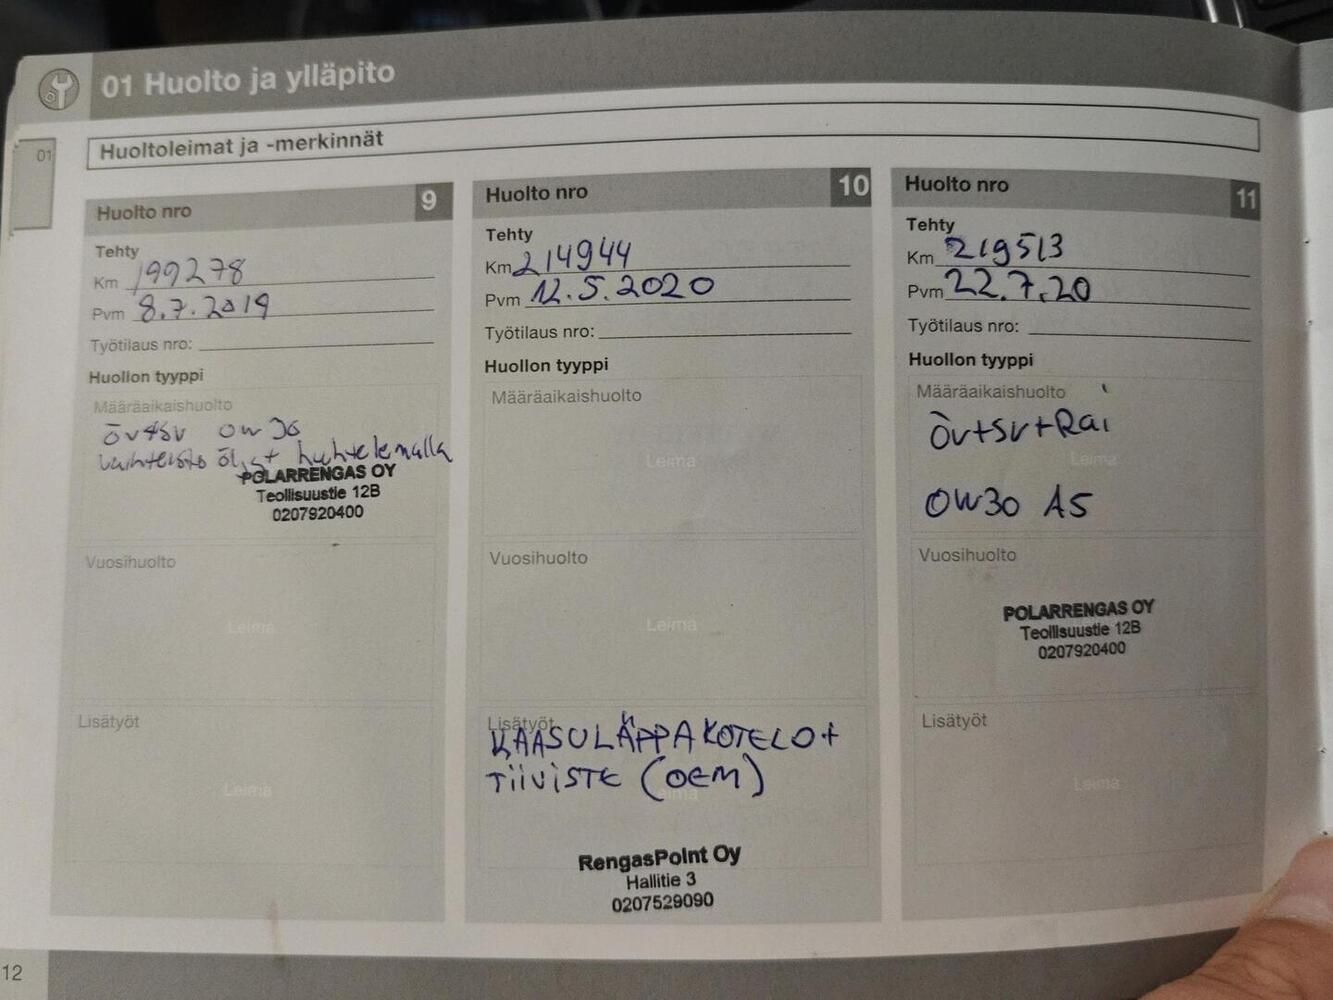 01 Huolto ja ylläpito
01
Huoltoleimat ja -merkinnät
Huolto nro 9
Tehty
Km 199278
Pvm 8.7.2019
Työtilaus nro:
Huollon tyyppi
Määräaikaishuolto
öv+sv 0w30
vaihteisto öljyt huhtelemalla
POLARRENGAS OY
Teollisuustie 12B
0207920400
Vuosihuolto
Leima
Lisätyöt
Leima
Huolto nro 10
Tehty
Km 214944
Pvm 12.5.2020
Työtilaus nro:
Huollon tyyppi
Määräaikaishuolto
Leima
Vuosihuolto
Leima
Lisätyöt
KAASULÄPPÄKOTELO+
TiiViSTE (OEM)
Leima
RengasPoint Oy
Hallitie 3
0207529090
Huolto nro 11
Tehty
Km 219513
Pvm 22.7.20
Työtilaus nro:
Huollon tyyppi
Määräaikaishuolto
öv+sv+Rai
Leima
0W30 A5
Vuosihuolto
POLARRENGAS OY
Teollisuustie 12B
0207920400
Lisätyöt
Leima
12